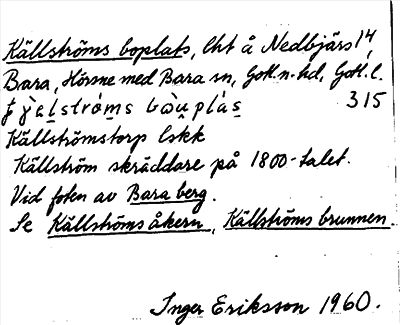 Källströms boplats, lht å Nedbjärs 1⁴,
Bara, Hörsne med Bara sn, Gotl.n.hd, Gotl.l.
315
Källströmstorp Eskk
Källström skräddare på 1800-talet.
Vid foten av Bara berg.
Se Källströms åkern, Källströms brunnen.
Inger Eriksson 1960.